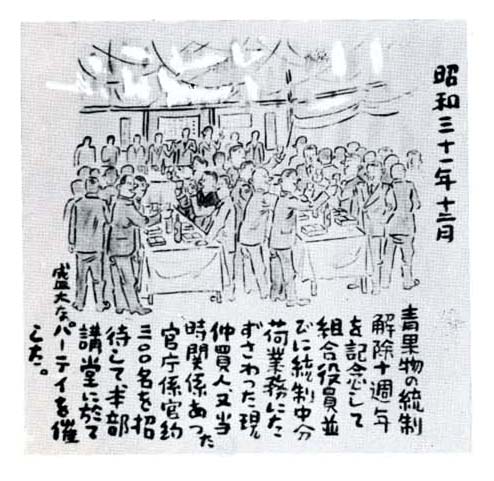 昭和三十一年十二月
青果物の統制
解除十週年
を記念して
組合役員並
びに統制中分
荷業務にた
ずさわった現
仲買人又当
時関係あった
官庁係官約
三〇〇名を招
待して本部
講堂に於て
盛大なパーティを催
した。